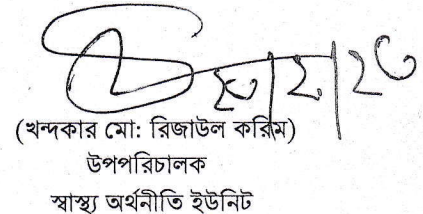 (খন্দকার মো: রিজাউল করিম)
উপপরিচালক
স্বাস্থ্য অর্থনীতি ইউনিট